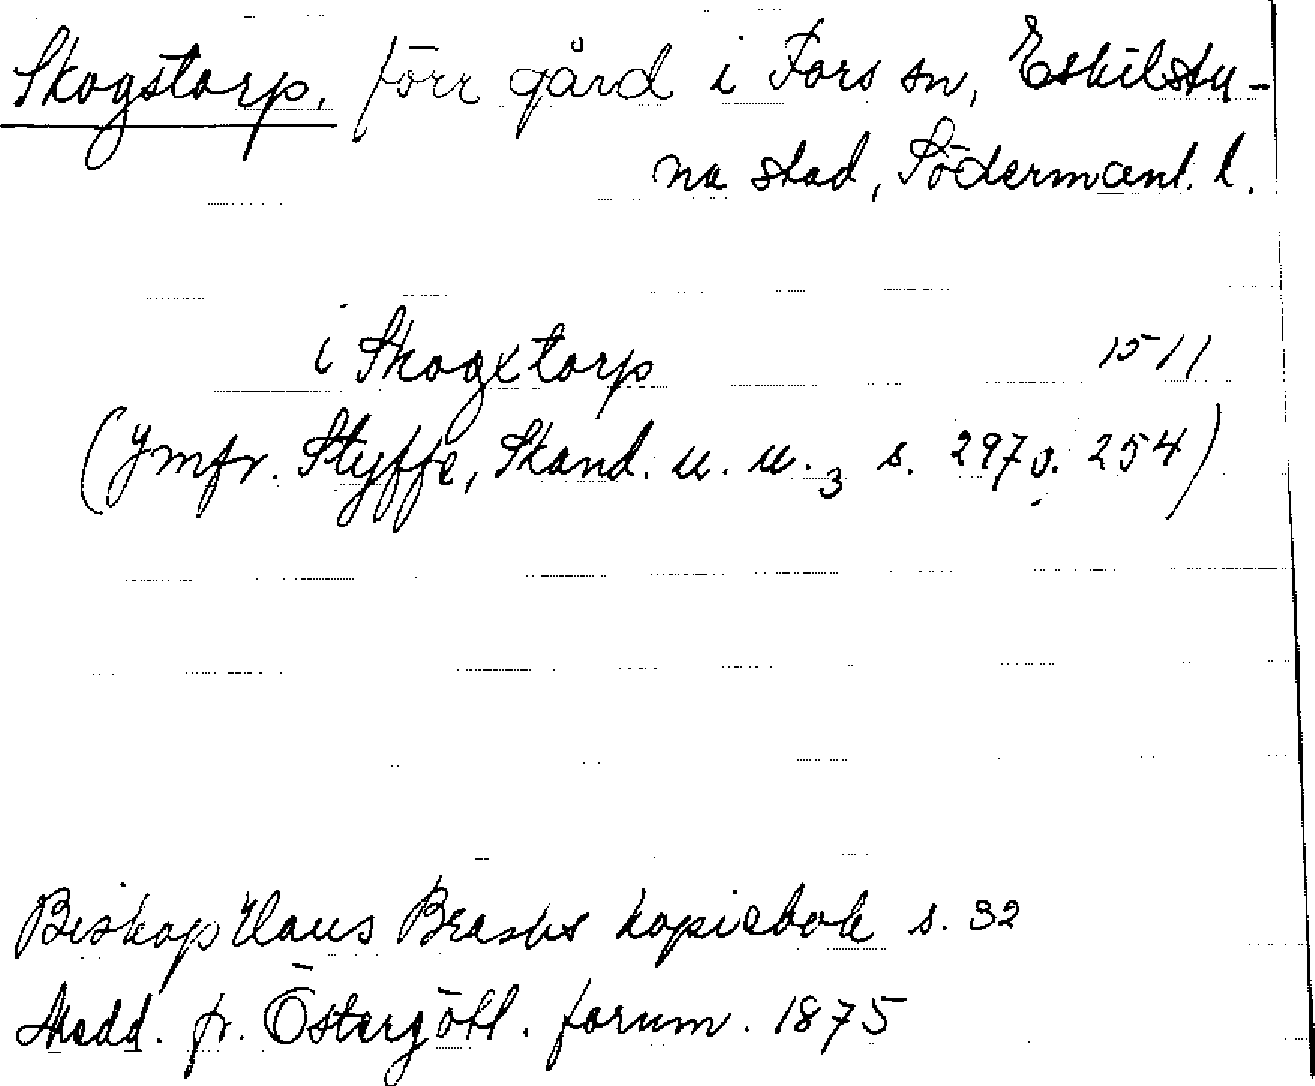 Skogstorp, förr gård i Fors sn, Eskilstu-
na stad, Södermanl. l.
i Skogxtorp 1511
(Jmfr. Styffe, Skand. u. u.3 s. 297 o. 254)
Biskop Hans Brasks kopiebok s. 32
Medd. fr. Östergötl. fornm. 1875